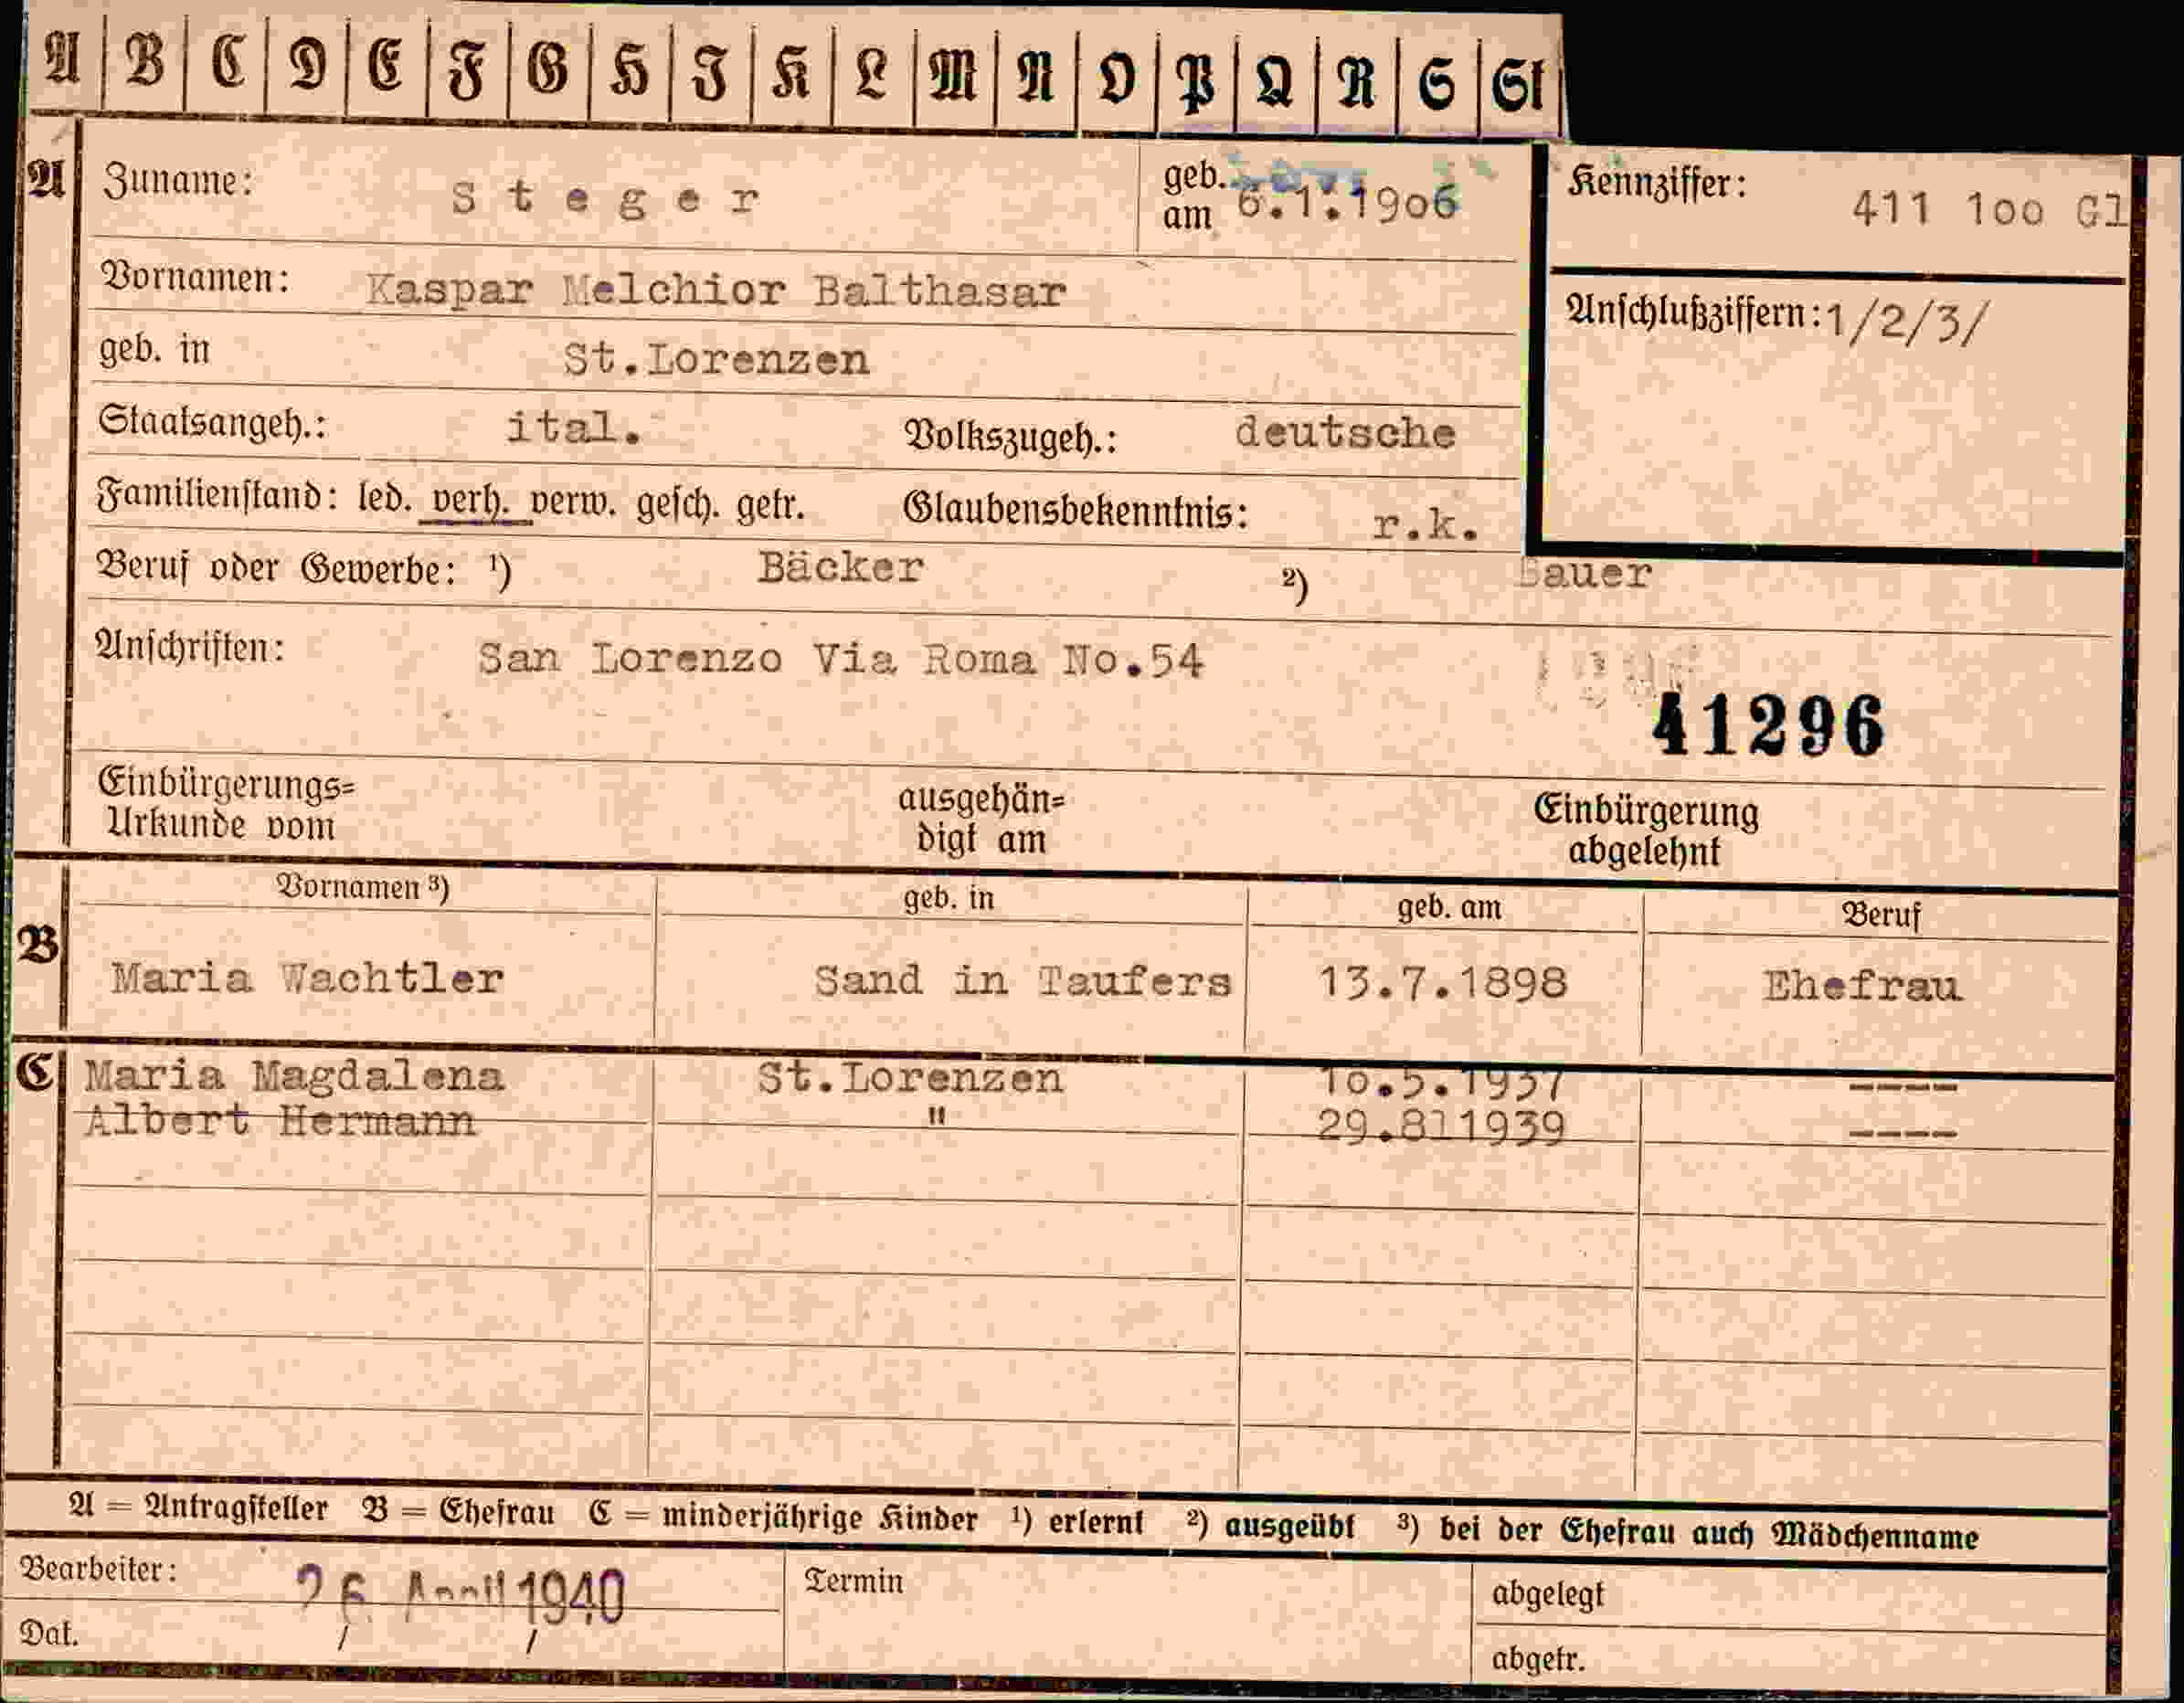 A B C D E F G H I K L M N O P Q R S St
A Zuname: Steger geb. am 6.1.1906 Kennziffer: 411 100 Gl
Vornamen: Kaspar Melchior Balthasar Anschlußziffern: 1/2/3/
geb. in St.Lorenzen
Staatsangeh.: ital. Volkszugeh.: deutsche
Familienstand: led. verh. verw. gesch. getr. Glaubensbekenntnis: r.k.
Beruf oder Gewerbe: ¹) Bäcker ²) Bauer
Anschriften: San Lorenzo Via Roma No.54
41296
Einbürgerungs= ausgehän= Einbürgerung
Urkunde vom digt am abgelehnt
Vornamen ³) geb. in geb. am Beruf
B Maria Wachtler Sand in Taufers 13.7.1898 Ehefrau
C Maria Magdalena St.Lorenzen 10.5.1937 ----
Albert Hermann " 29.811939 ----
A = Antragsteller B = Ehefrau C = minderjährige Kinder ¹) erlernt ²) ausgeübt ³) bei der Ehefrau auch Mädchenname
Bearbeiter: 26. April 1940 Termin abgelegt
Dat. abgetr.